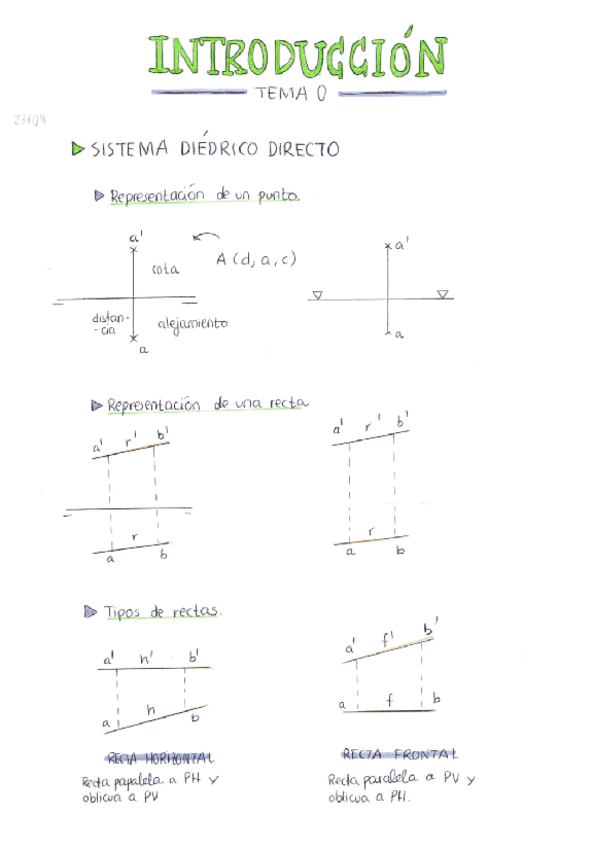 INTRODUCCIÓN
TEMA 0
23/09
SISTEMA DIÉDRICO DIRECTO
Representación de un punto.
a'
cota
A (d, a, c)
distan-
-cia
alejamiento
a
a'
a
Representación de una recta
a' r' b'
r
a b
a' r' b'
r
a b
Tipos de rectas.
a' h' b'
h
a b
RECTA HORIZONTAL
Recta papalela a PH y
oblicua a PV
a' f' b'
a f b
RECTA FRONTAL
Recta paralela a PV y
oblicua a PH.